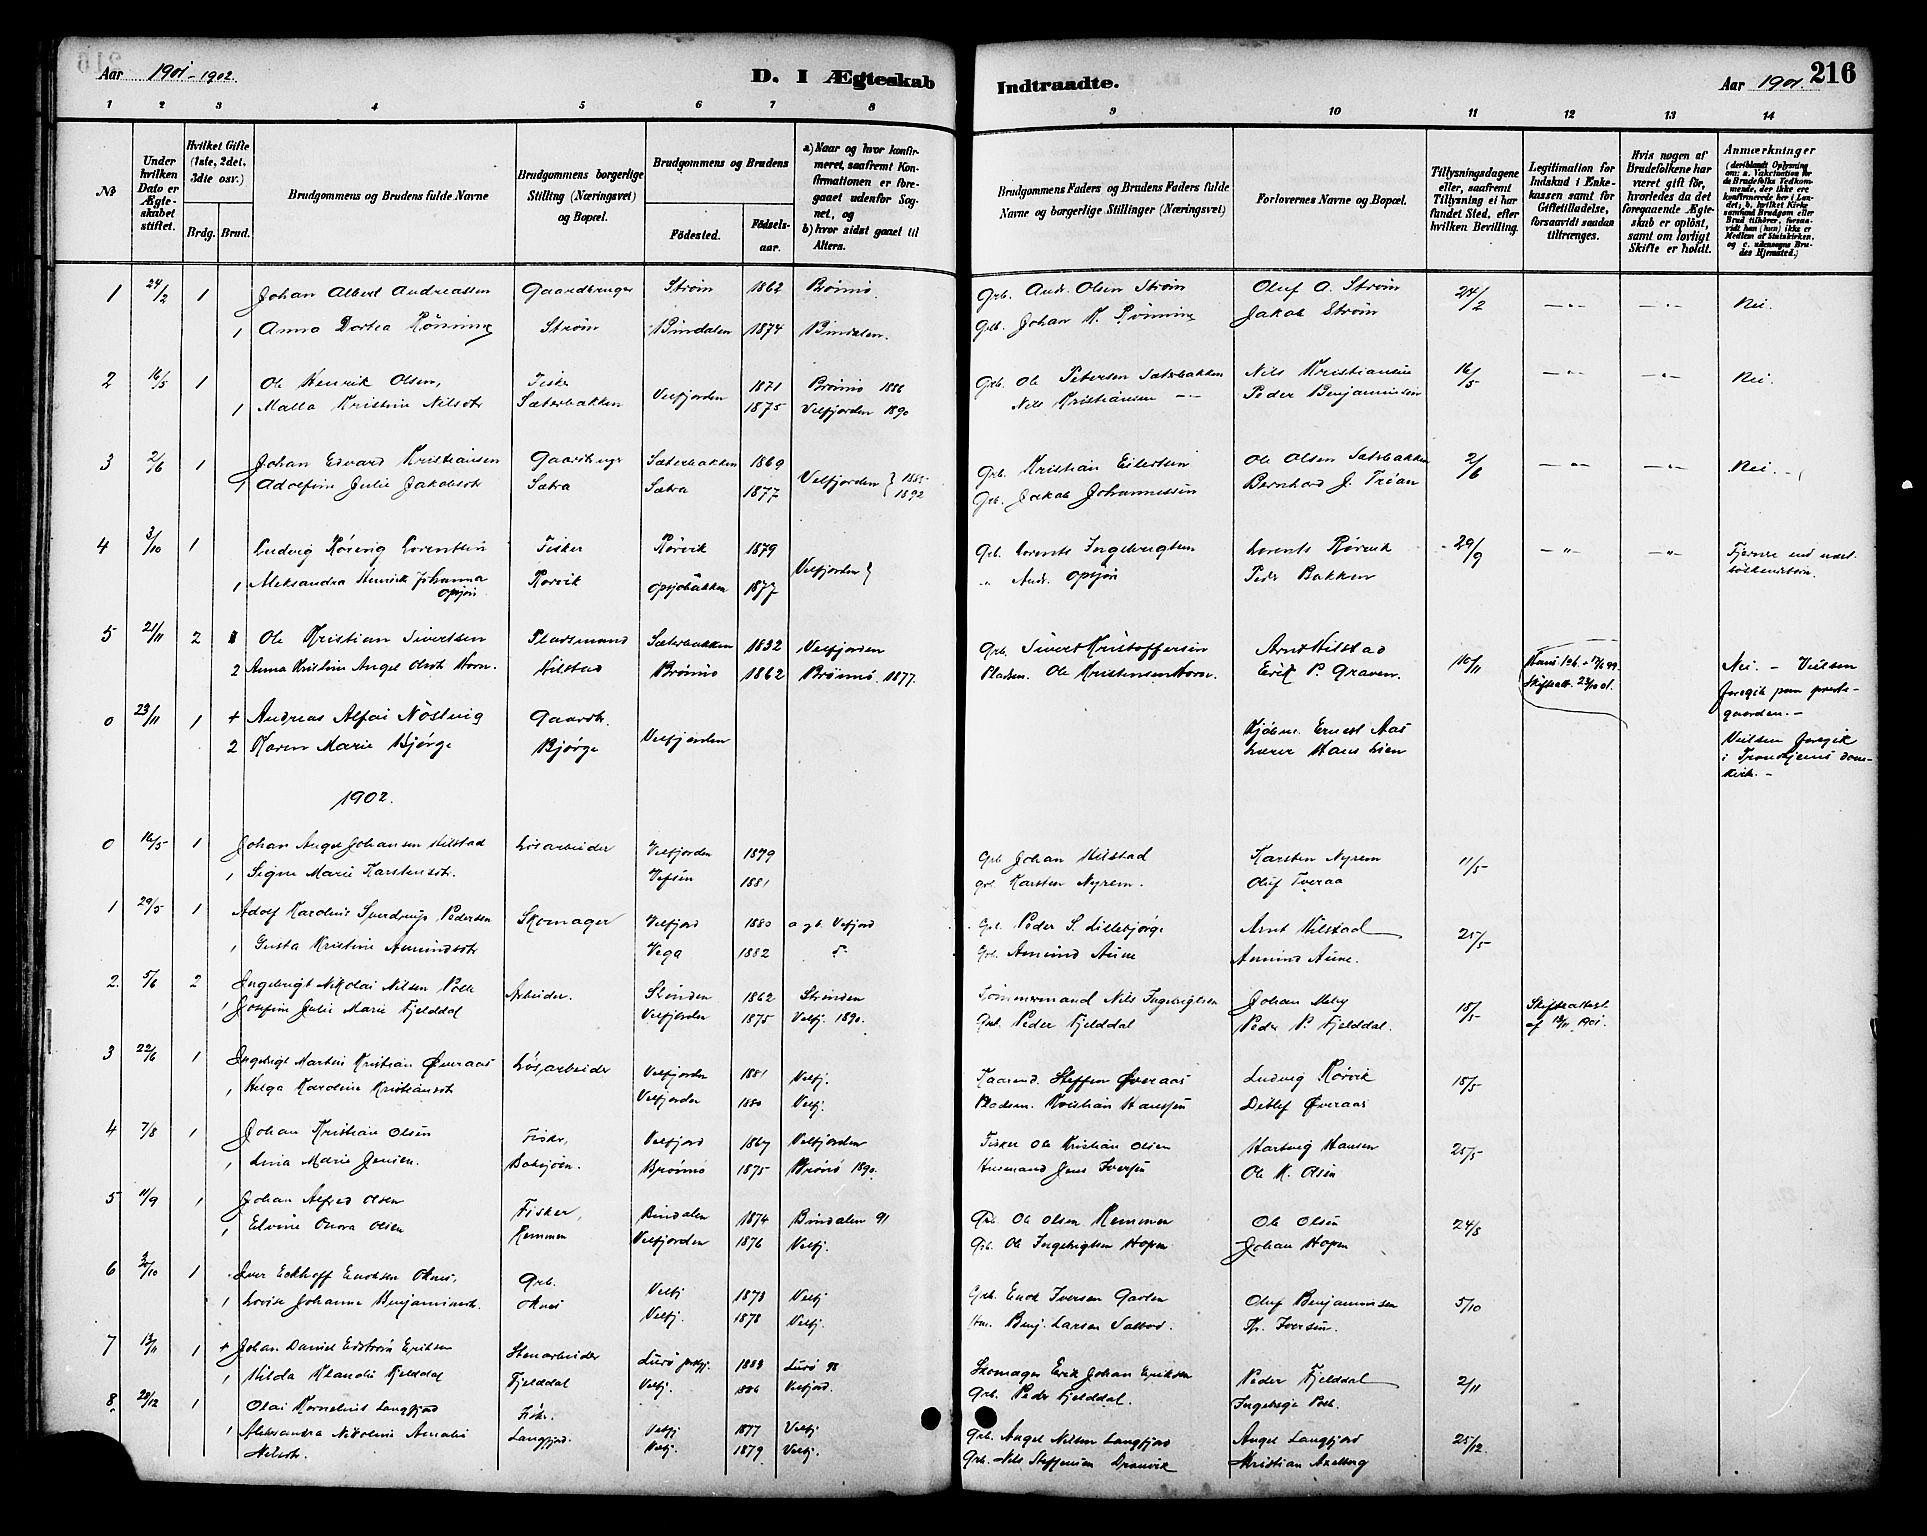 Aar 1901-1902.
D. I Ægteskab
Indtraadte.
Aar 1901.
216
1 2 3 4 5 6 7 8
9 10 11 12 13 14
No
Under hvilken Dato er Ægteskabet stiftet.
Hvilket Gifte (1ste, 2det, 3die osv.)
Brdg. Brud.
Brudgommens og Brudens fulde Navne
Brudgommens borgerlige Stilling (Næringsvei) og Bopæl.
Brudgommens og Brudens
Födested.
Födsels-aar.
a) Naar og hvor konfirmeret, saafremt Konfirmationen er foregaaet udenfor Sognet, og
b) hvor sidst gaaet til Alters.
Brudgommens Faders og Brudens Faders fulde Navne og borgerlige Stillinger (Næringsvei)
Forlovernes Navne og Bopæl.
Tillysningsdagene eller, saafremt Tillysning ei har fundet Sted, efter hvilken Bevilling.
Legitimation for Indskud i Enkekassen samt for Giftetilladelse, forsaavidt saadan tiltrænges.
Hvis nogen af Brudefolkene har været gift för, hvorledes da det foregaaende Ægteskab er oplöst, samt om lovligt Skifte er holdt.
Anmærkninger
(deriblandt Oplysning om: a. Vakcination for de Brudefolks Vedkommende, der ikke ere konfirmerede her i Landet; b. hvilket Kirkesamfund Brudgom eller Brud tilhörer, forsaavidt han (hun) ikke er Medlem af Statskirken, og c. udensogns Brudes Hjemsted.)
1 24/2 1 Johan Albert Andreassen Gaardbruger Strøm 1862 Brønnø. Grb. Andr. Olsen Strøm Oluf A. Strøm 24/2 Nei.
1 Anna Dortea Rønning Strøm Bindalen 1874 Bindalen. Grb. Johan K. Rønning Jakob Strøm
2 16/5 1 Ole Henrik Olsen, Fisker 1871 Brønnø 1886 Grb. Ole Petersen Sæterbakken Nils Kristiansen 16/5 Nei.
1 Malla Kristine Nilsdtr Sæterbakken Velfjorden 1875 Velfjorden 1890 Nils Kristiansen Peder Benjaminsen
3 2/6 1 Johan Edvard Kristiansen Gaardbruger Sæterbakken 1869 Velfjorden 1885 Grb. Kristian Eilertsen Ole Olsen Sæterbakken 2/6 Nei.
1 Adolfine Julie Jakobsdtr Sætra Sætra 1877 1892 Grb. Jakob Johannessen Bernhard J. Trøan
4 3/10 1 Ludvig Lorentsen Fisker Rørvik 1879 Velfjorden Grb. Lorents Ingebrigtsen Lorents Rørvik 29/9
1 Aleksandra Henrik Johanna Opsjøn Rørvik Opsjøbakken 1877 Andr. Opsjøn Peder Bakken
5 21/11 2 Ole Kristian Sivertsen Pladsmand Sæterbakken 1832 Velfjorden Grb. Sivert Kristoffersen Arnt Hilstad 10/11
2 Anna Kristine Angel Olsdt Horn. Hilstad Brønnø 1862 Brønnø. 1877. Pladsm. Ole Kristensen Horn. Erik P. Graven. Nei. - Vielsen foregik paa prestegaarden. -
0 23/11 1 Andreas Alfai Nøstvig Gaardb. Velfjorden Kjøbm. Ernest Aas Vielsen foregik i Trondhjems domkirke. -
2 Karen Marie Bjørge Bjørge Lærer Hans Lien
1902.
0 16/5 1 Johan Angel Johansen Hilstad Løsarbeider Velfjorden 1879 Grb Johan Hilstad Karsten Nyrem 11/5
1 Signe Marie Karstensdtr. Vefsen 1881 Grb. Karsten Nyrem. Oluf Tveraa
1 29/5 1 Adolf Karolius Sverdrup Pedersen Skomager Velfjord 1880 a og b Velfjord Grb. Peder S. Lillebjørge Arnt Hilstad 25/5
1 Gusta Kristine Amundsdtr Vega 1882 Grb. Amund Aune Amund Aune.
2 5/6 2 Ingebrigt Nikolai Nilsen Polk Arbeider. Strinden 1862 Strinden Tømmermand Nils Ingebrigtsen Johan Meby 18/5 Skifteattest af 13/11 1901.
1 Josefine Julie Marie Fjelddal Velfjorden 1875 Velfj. 1890. Grb. Peder Fjelddal Peder P. Fjelddal.
3 22/6 1 Ingebrigt Martin Kristian Øveraas Løsarbeider Velfjorden 1881 Velfj. Kaarend. Steffen Øveraas Ludvig Rørvik 15/5
1 Helga Karoline Kristiansdtr Velfjorden 1880 Velfj. Pladsm. Kristian Hanssen Detlef Øveraas
4 7/8 1 Johan Kristian Olsen Fisker, Velfjord 1867 Velfjorden Fisker Ole Kristian Olsen Hartvig Hansen 25/5
1 Lina Marie Jensen. Brønnø 1875 Brønø 1890. Husmand Jens Iversen Ole K. Olsen
5 11/9 1 Johan Alfred Olsen Fisker, Bindalen 1874 Bindalen 91 Grb Ole Olsen Kemmen Ole Olsen 24/8
1 Elvine Onora Olsen Kemmen Velfjorden 1876 Velfj. Grb. Ole Ingebrigtsen Hopen Johan Hopen
6 1 Iver Eckhoff Enoksen Oknes, Grb. Velfj 1878 Velfj Grb. Enok Iversen Garden Oluf Benjaminsen 5/10
1 Lovise Johanne Benjaminsdt. Oknes Velfj. 1878 Velfj. Hm. Benj. Larsen Th. Iversen.
7 13/11 1 Johan Daniel Edstrøm Eriksen Stenarbeider Lurø 1883 Lurø 98 Skomager Erik Johan Eriksen Peder Fjelddal 2/11
1 Hilda Klaudie Fjelddal Fjelddal Velfj. 1886 Velfjord. Grb. Peder Fjelddal. Ingebrigt Polk.
8. 28/12 1 Olai Kornelius Langfjord Fisker. Velfj 1877 Velfj Grb. Angel Nilsen Langfjord Angel Langfjord 25/12.
1 Aleksandra Nikoline Amalie Nilsdtr. Langfjord. Velfj. 1879 Velfj. Grb. Nils Steffensen Kristian Axelberg